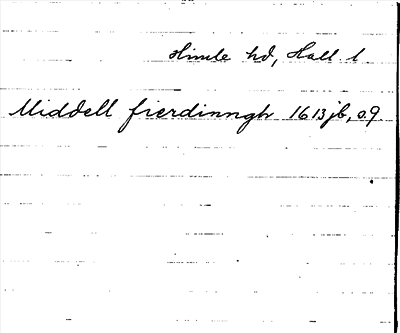 Himle hd, Hall. l
Middell fierdinngh 1613 jb, s. 9.